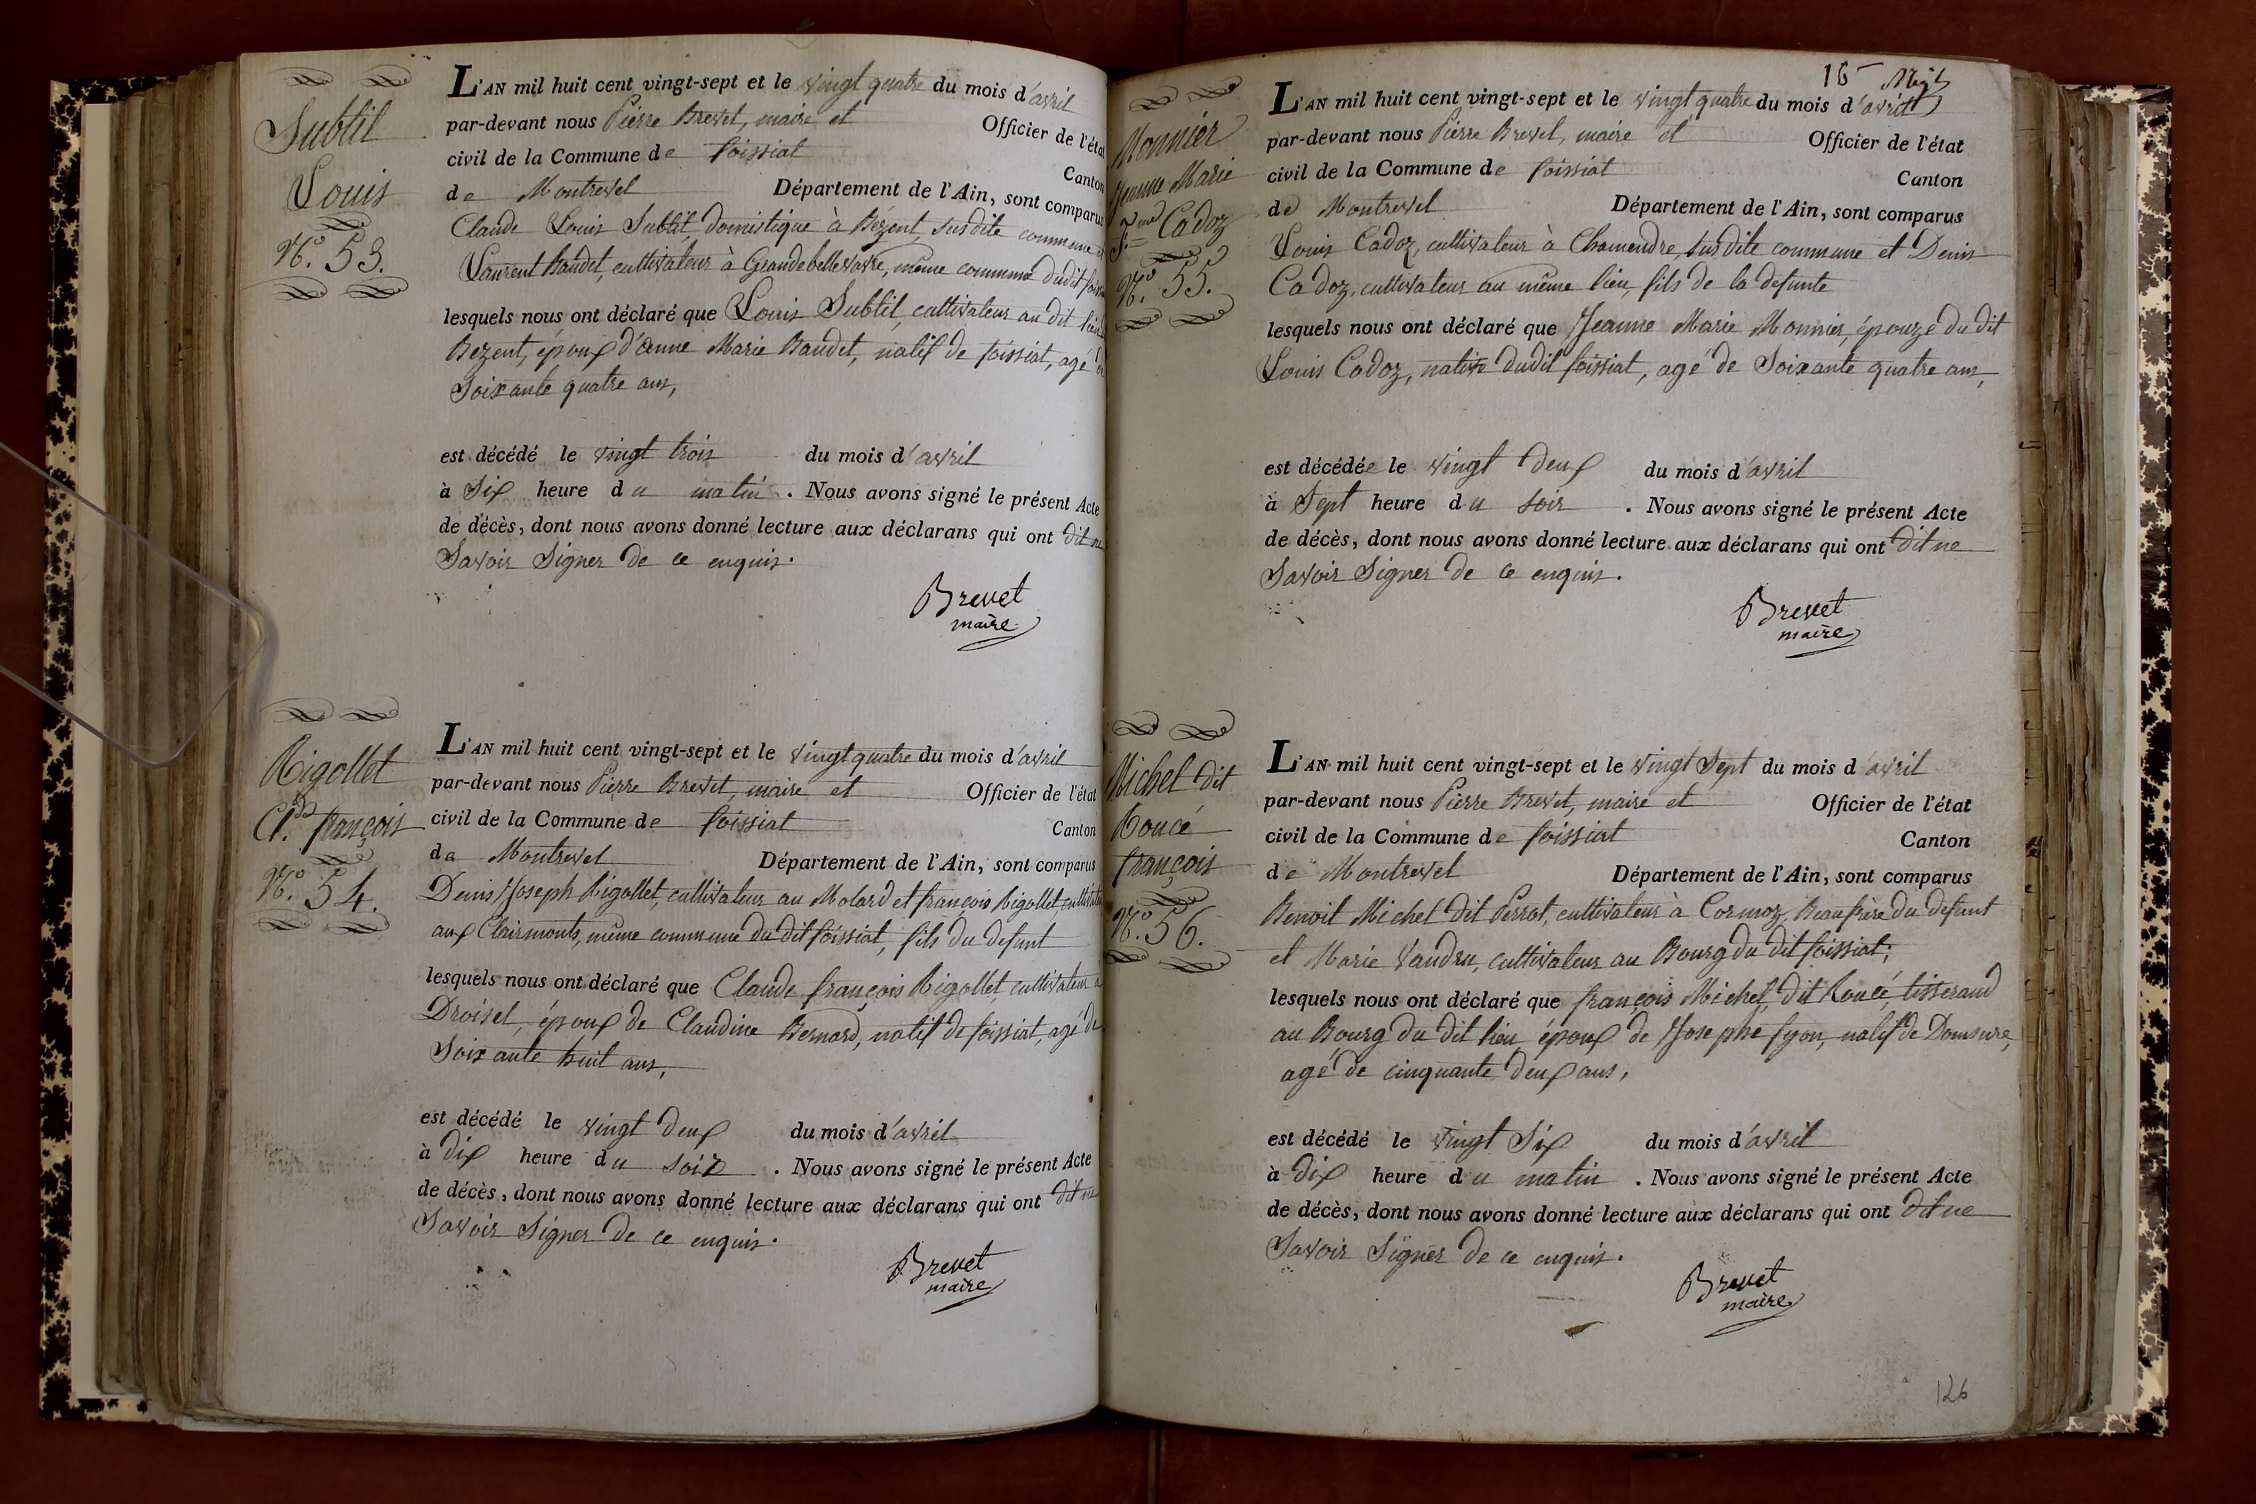 Subtil
Louis
N.º 53.
L'AN mil huit cent vingt-sept et le vingt quatre du mois d'avril
par-devant nous Pierre Brevet, maire et Officier de l'état
civil de la Commune de foissiat Canton
de Montrevel Département de l'Ain, sont comparus
Claude Louis Subtil, domistique à Bezent, susdite commune et
Laurent Baudet, cultivateur à Grandebellevavre, même commune dudit
lesquels nous ont déclaré que Louis Subtil, cultivateur au dit
Bezent, époux d'anne Marie Baudet, natif de foissiat, agé
Soixante quatre ans,
est décédé le vingt trois du mois d'avril
à Six heure du matin. Nous avons signé le présent Acte
de décès, dont nous avons donné lecture aux déclarans qui ont dit ne
Savoir Signer de ce enquis.
Brevet
maire
Rigollet
Cl.de françois
N.º 54.
L'AN mil huit cent vingt-sept et le vingt quatre du mois d'avril
par-devant nous Pierre Brevet, maire et Officier de l'état
civil de la Commune de foissiat Canton
de Montrevel Département de l'Ain, sont comparus
Denis Joseph Rigollet, cultivateur au Molard et françois Rigollet, cultivateur
aux Clairmonts, même commune du dit foissiat, fils du defunt
lesquels nous ont déclaré que Claude françois Rigollet, cultivateur a
Droiset, époux de Claudine Bernard, natif de foissiat, agé de
Soixante huit ans,
est décédé le vingt deux du mois d'avril
à dix heure du soir. Nous avons signé le présent Acte
de décès, dont nous avons donné lecture aux déclarans qui ont dit ne
Savoir Signer de ce enquis.
Brevet
maire
16
Monnier
Jeanne Marie
F.me Cadoz
N.º 55.
L'AN mil huit cent vingt-sept et le vingt quatre du mois d'avril
par-devant nous Pierre Brevet, maire et Officier de l'état
civil de la Commune de foissiat Canton
de Montrevel Département de l'Ain, sont comparus
Louis Cadoz, cultivateur à Chamendre, susdite commune et Denis
Cadoz, cultivateur au même lieu, fils de la defunte
lesquels nous ont déclaré que Jeanne Marie Monnier, épouze du dit
Louis Cadoz, native dudit foissiat, agé de Soixante quatre ans,
est décédée le vingt deux du mois d'avril
à Sept heure du soir. Nous avons signé le présent Acte
de décès, dont nous avons donné lecture aux déclarans qui ont dit ne
Savoir Signer de ce enquis.
Brevet
maire
Michel dit
Roucé
françois
N.º 56.
L'AN mil huit cent vingt-sept et le vingt Sept du mois d'avril
par-devant nous Pierre Brevet, maire et Officier de l'état
civil de la Commune de foissiat Canton
de Montrevel Département de l'Ain, sont comparus
Benoit Michel dit Perrat, cultivateur à Cormoz, Beaufrère du defunt
et Marie Vandru, cultivateur au Bourg du dit foissiat;
lesquels nous ont déclaré que françois Michel, dit Roucé, tisserand
au Bourg du dit lieu, époux de Josephe fyon, natif de Domsure,
agé de cinquante deux ans,
est décédé le vingt Six du mois d'avril
à dix heure du matin. Nous avons signé le présent Acte
de décès, dont nous avons donné lecture aux déclarans qui ont dit ne
Savoir Signer de ce enquis.
Brevet
maire
126